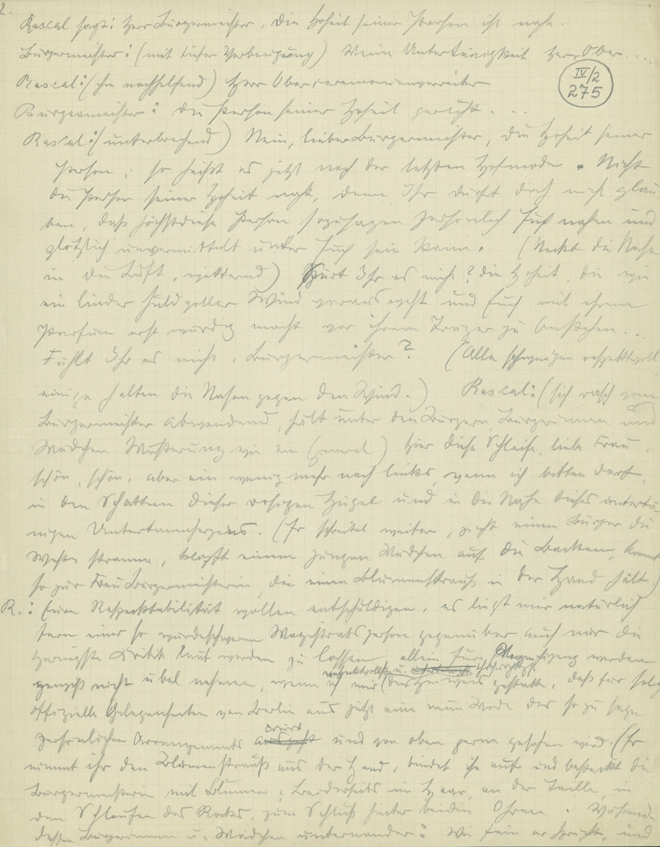 2.
Rascal sagt: Herr Bürgermeister, die Hoheit seiner Person ist nahe.
Bürgermeister: (mit tiefer Verbeugung) Meine Untertänigkeit Herr Ober....
Rascal: (ihm nachhelfend) Herr Oberceremonienverwalter
IV/2
275
Bürgermeister: die Person seiner Hoheit geruht....
Rascal: (unterbrechend) Nein, lieber Bürgermeister, die Hoheit seiner
Person; so heisst es jetzt nach der letzten Hofmode. Nicht
die Person seiner Hoheit naht, denn Ihr dürft doch nicht glau
ben, dass höchstdiese Person sozusagen persönlich Euch nahen und
plötzlich unvermittelt unter Euch sein kann. (Reckt die Nase
in die Luft, witternd) Spürt Ihr es nicht? die Hoheit, die wie
ein linder huldvoller Wind voraus weht und Euch mit ihrem
Parfum erst würdig macht vor ihrem Träger zu bestehen...
Fühlt Ihr es nicht, Bürgermeister? (Alle schweigen respektvoll,
einige halten die Nasen gegen den Wind.) Rascal: (sich rasch vom
Bürgermeister abwendend, hält unter den Bürgern, Bürgerinnen und
Mädchen Musterung wie ein General) Hier diese Schleife, liebe Frau,
schön, schön, aber ein wenig mehr nach links, wenn ich bitten darf,
in den Schatten dieser rosigen Hügel und in die Nähe dieses untertä-
nigen Untertanenherzens. (Er schreitet weiter, zieht einem Bürger die
Weste stramm, klopft einem jungen Mädchen auf die Backen, kommt
so zur Frau Bürgermeisterin, die einen Blumenstrauss in der Hand hält)
R.: Eure Respektabilität wollen entschuldigen, es liegt mir natürlich
fern einer so würdeschweren Magistratsperson gegenüber auch nur die
geringste Kritik laut werden zu lassen, allein Eure werden
gewiss nicht übel nehmen, wenn ich mir gestatte, dass für solch
offizielle Gelegenheiten von Berlin aus jetzt eine neue Mode der so zu sagen
persönlichen Arrangements und von oben gern gesehen wird (Er
nimmt ihr den Blumenstrauss aus der Hand, bindet ihn auf und besteckt die
Bürgermeisterin mit Blumen: beiderseits im Haar, an der Taille, in
den Schlaufen des Rocks, zum Schluss hinter beiden Ohren. Während
dessen Bürgerinnen u. Mädchen untereinander: Wie fein er spricht, und